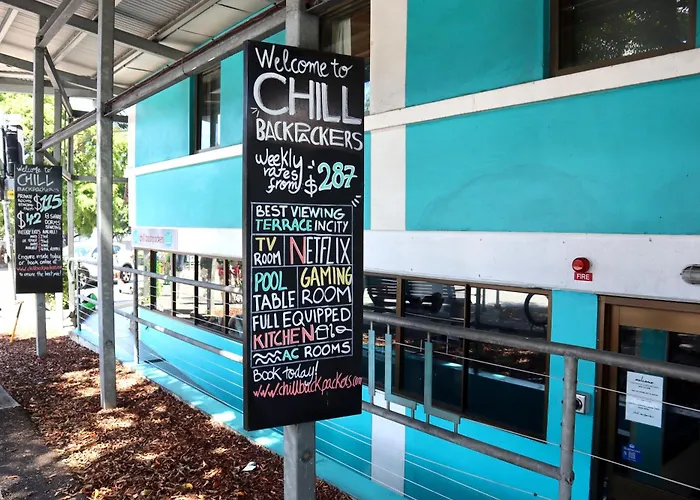 Welcome to
CHILL
BACKPACKERS
weekly
rates
from $287
BEST VIEWING
TERRACE IN CITY
TV
ROOM
NETFLIX
POOL
TABLE
GAMING
ROOM
FULL EQUIPPED
KITCHEN
AC ROOMS
BOOK TODAY!
www.chillbackpackers.com
Welcome to
CHILL
BACKPACKERS
PRIVATE
ROOMS
$115
$42
FIRE
welcome